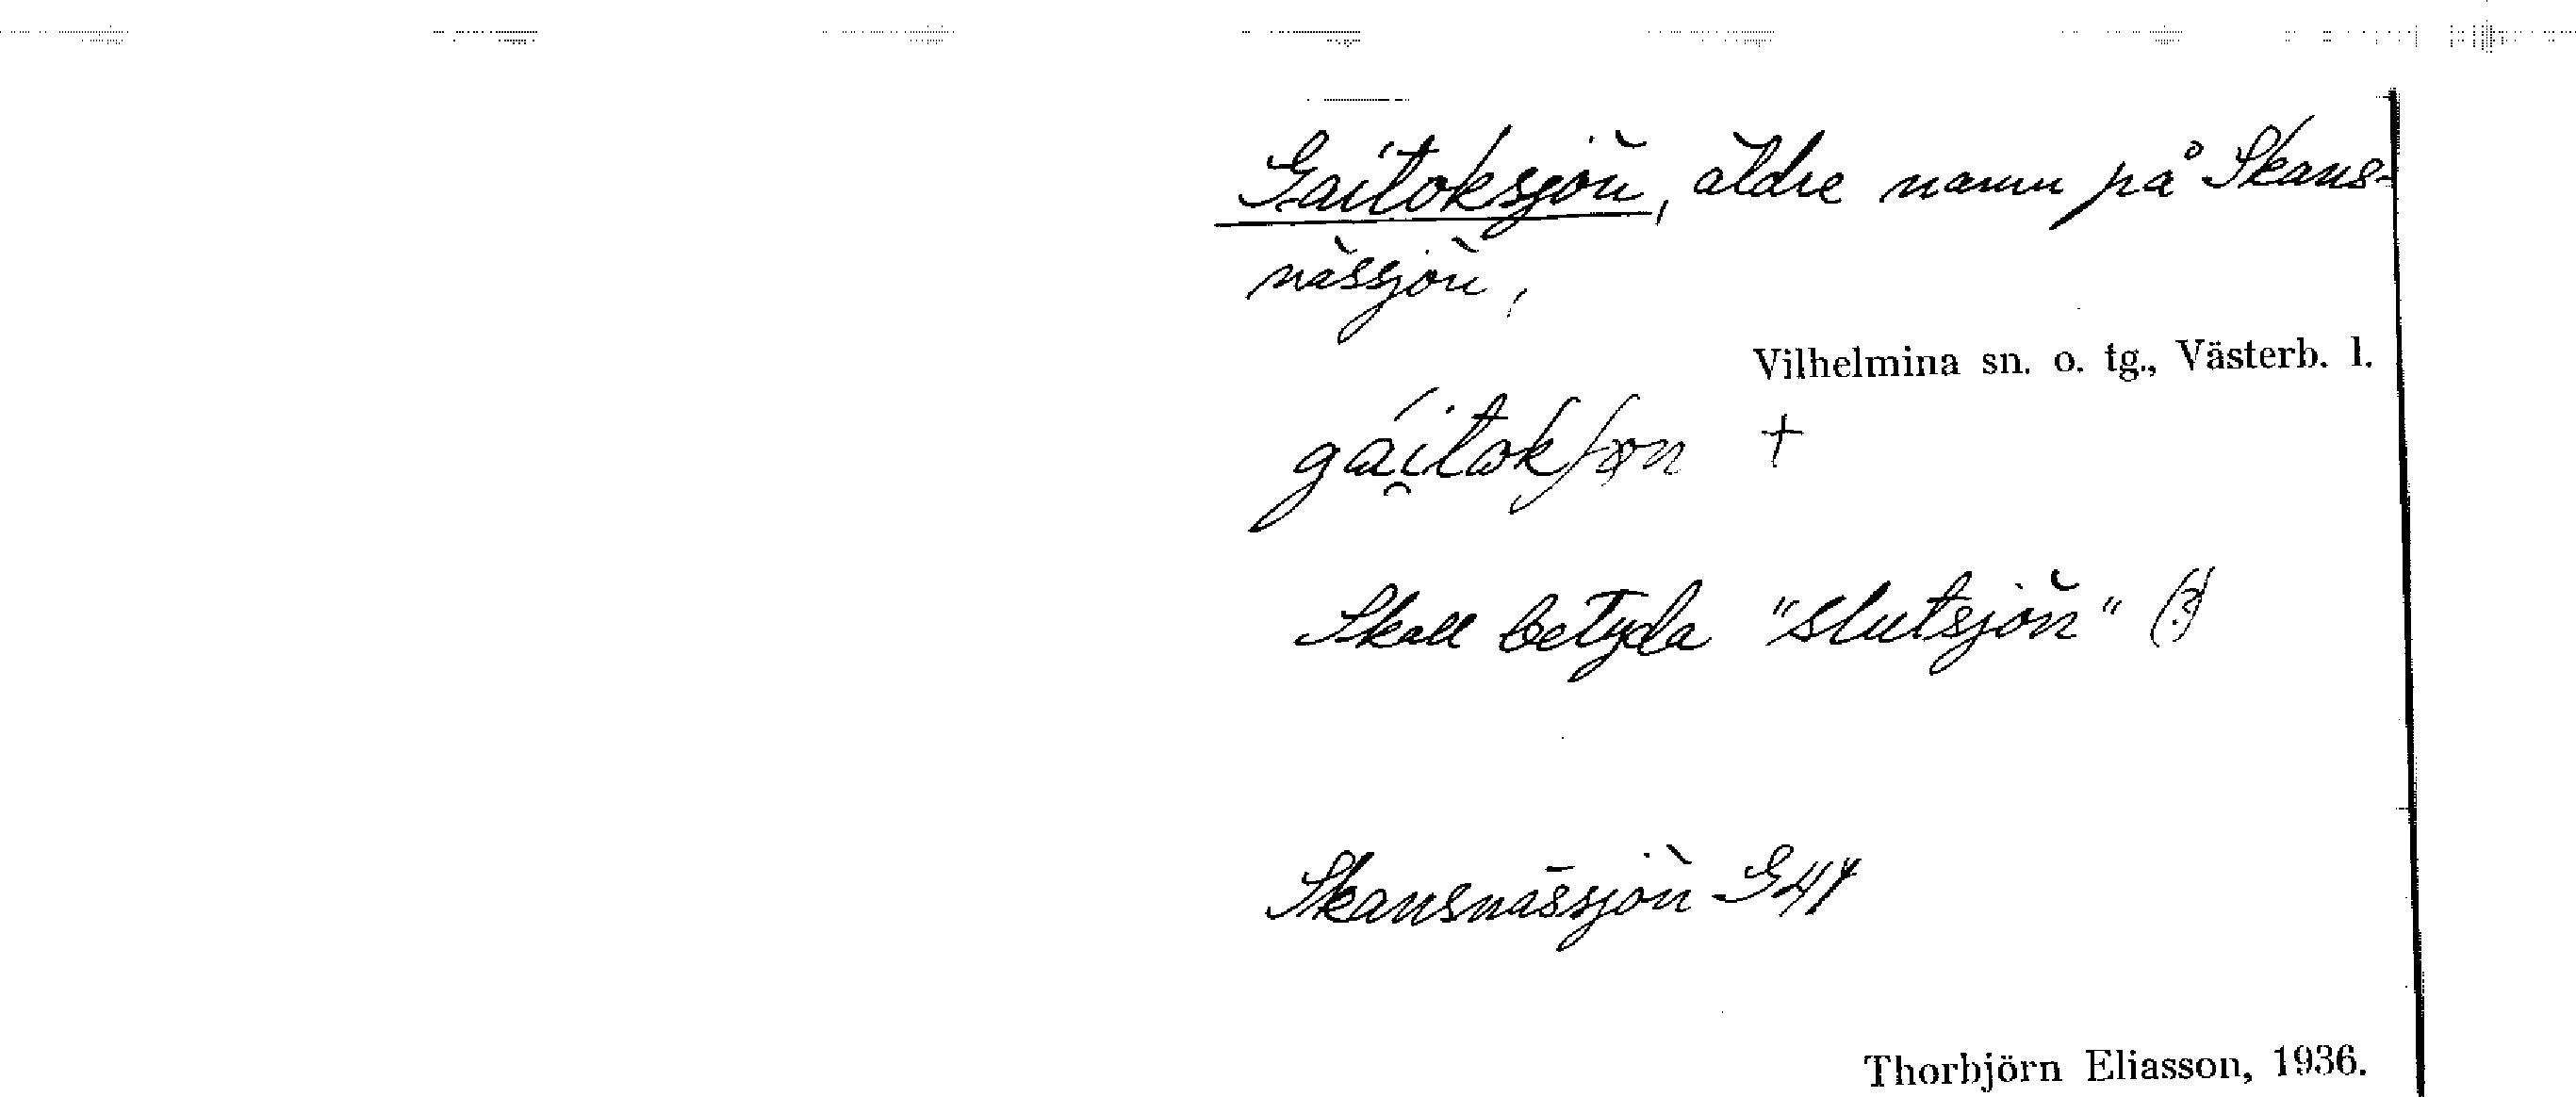 Gaitoksjön, äldre namn på Skans-
nässjön,
Vilhelmina sn. o. tg., Västerb. l.
+
Skall betyda "slutsjön" (?)
Skansnässjön G47
Thorbjörn Eliasson, 1936.